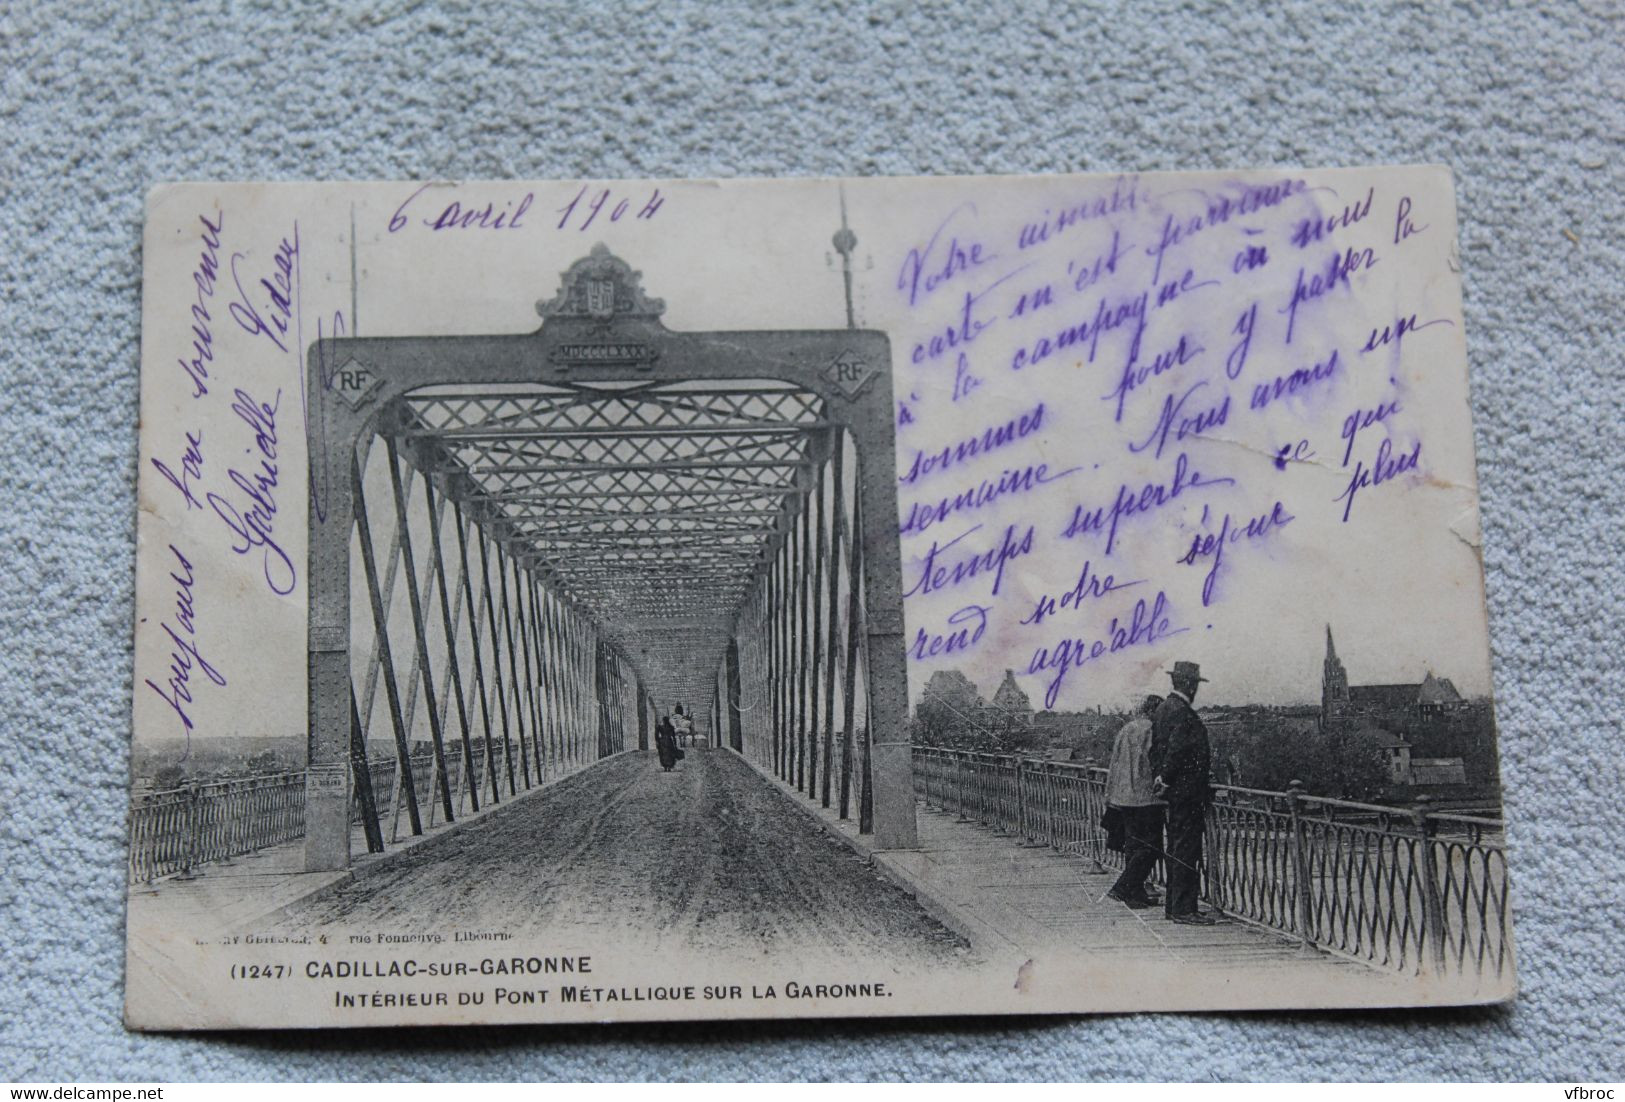 6 avril 1904
Votre aimable
carte m'est parvenue
à la campagne où nous
sommes pour y passer la
semaine. Nous avons un
temps superbe ce qui
rend notre séjour plus
agréable.
toujours bon souvenir
Gabrielle Videau
MDCCCLXXX
RF
RF
4 rue Fonneuve. Libourne
(1247) CADILLAC-SUR-GARONNE
INTÉRIEUR DU PONT MÉTALLIQUE SUR LA GARONNE.
www.delcampe.net
vfbroc